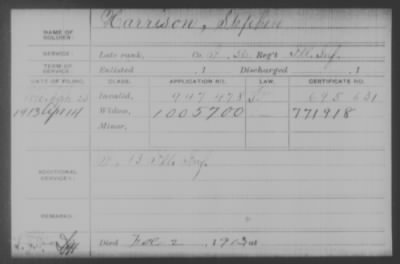 NAME OF SOLDIER: Harrison, Stephen
SERVICE: Late rank, Co. Reg't Ill. Inf.
TERM OF SERVICE: Enlisted , 1 Discharged , 1
DATE OF FILING. CLASS. APPLICATION NO. LAW. CERTIFICATE NO.
Invalid, 947478 695631
1913 Apr 14 Widow, 1005700 771918
Minor,
ADDITIONAL SERVICES: Ill. Inf.
REMARKS:
Died Dec 2, 1912 at